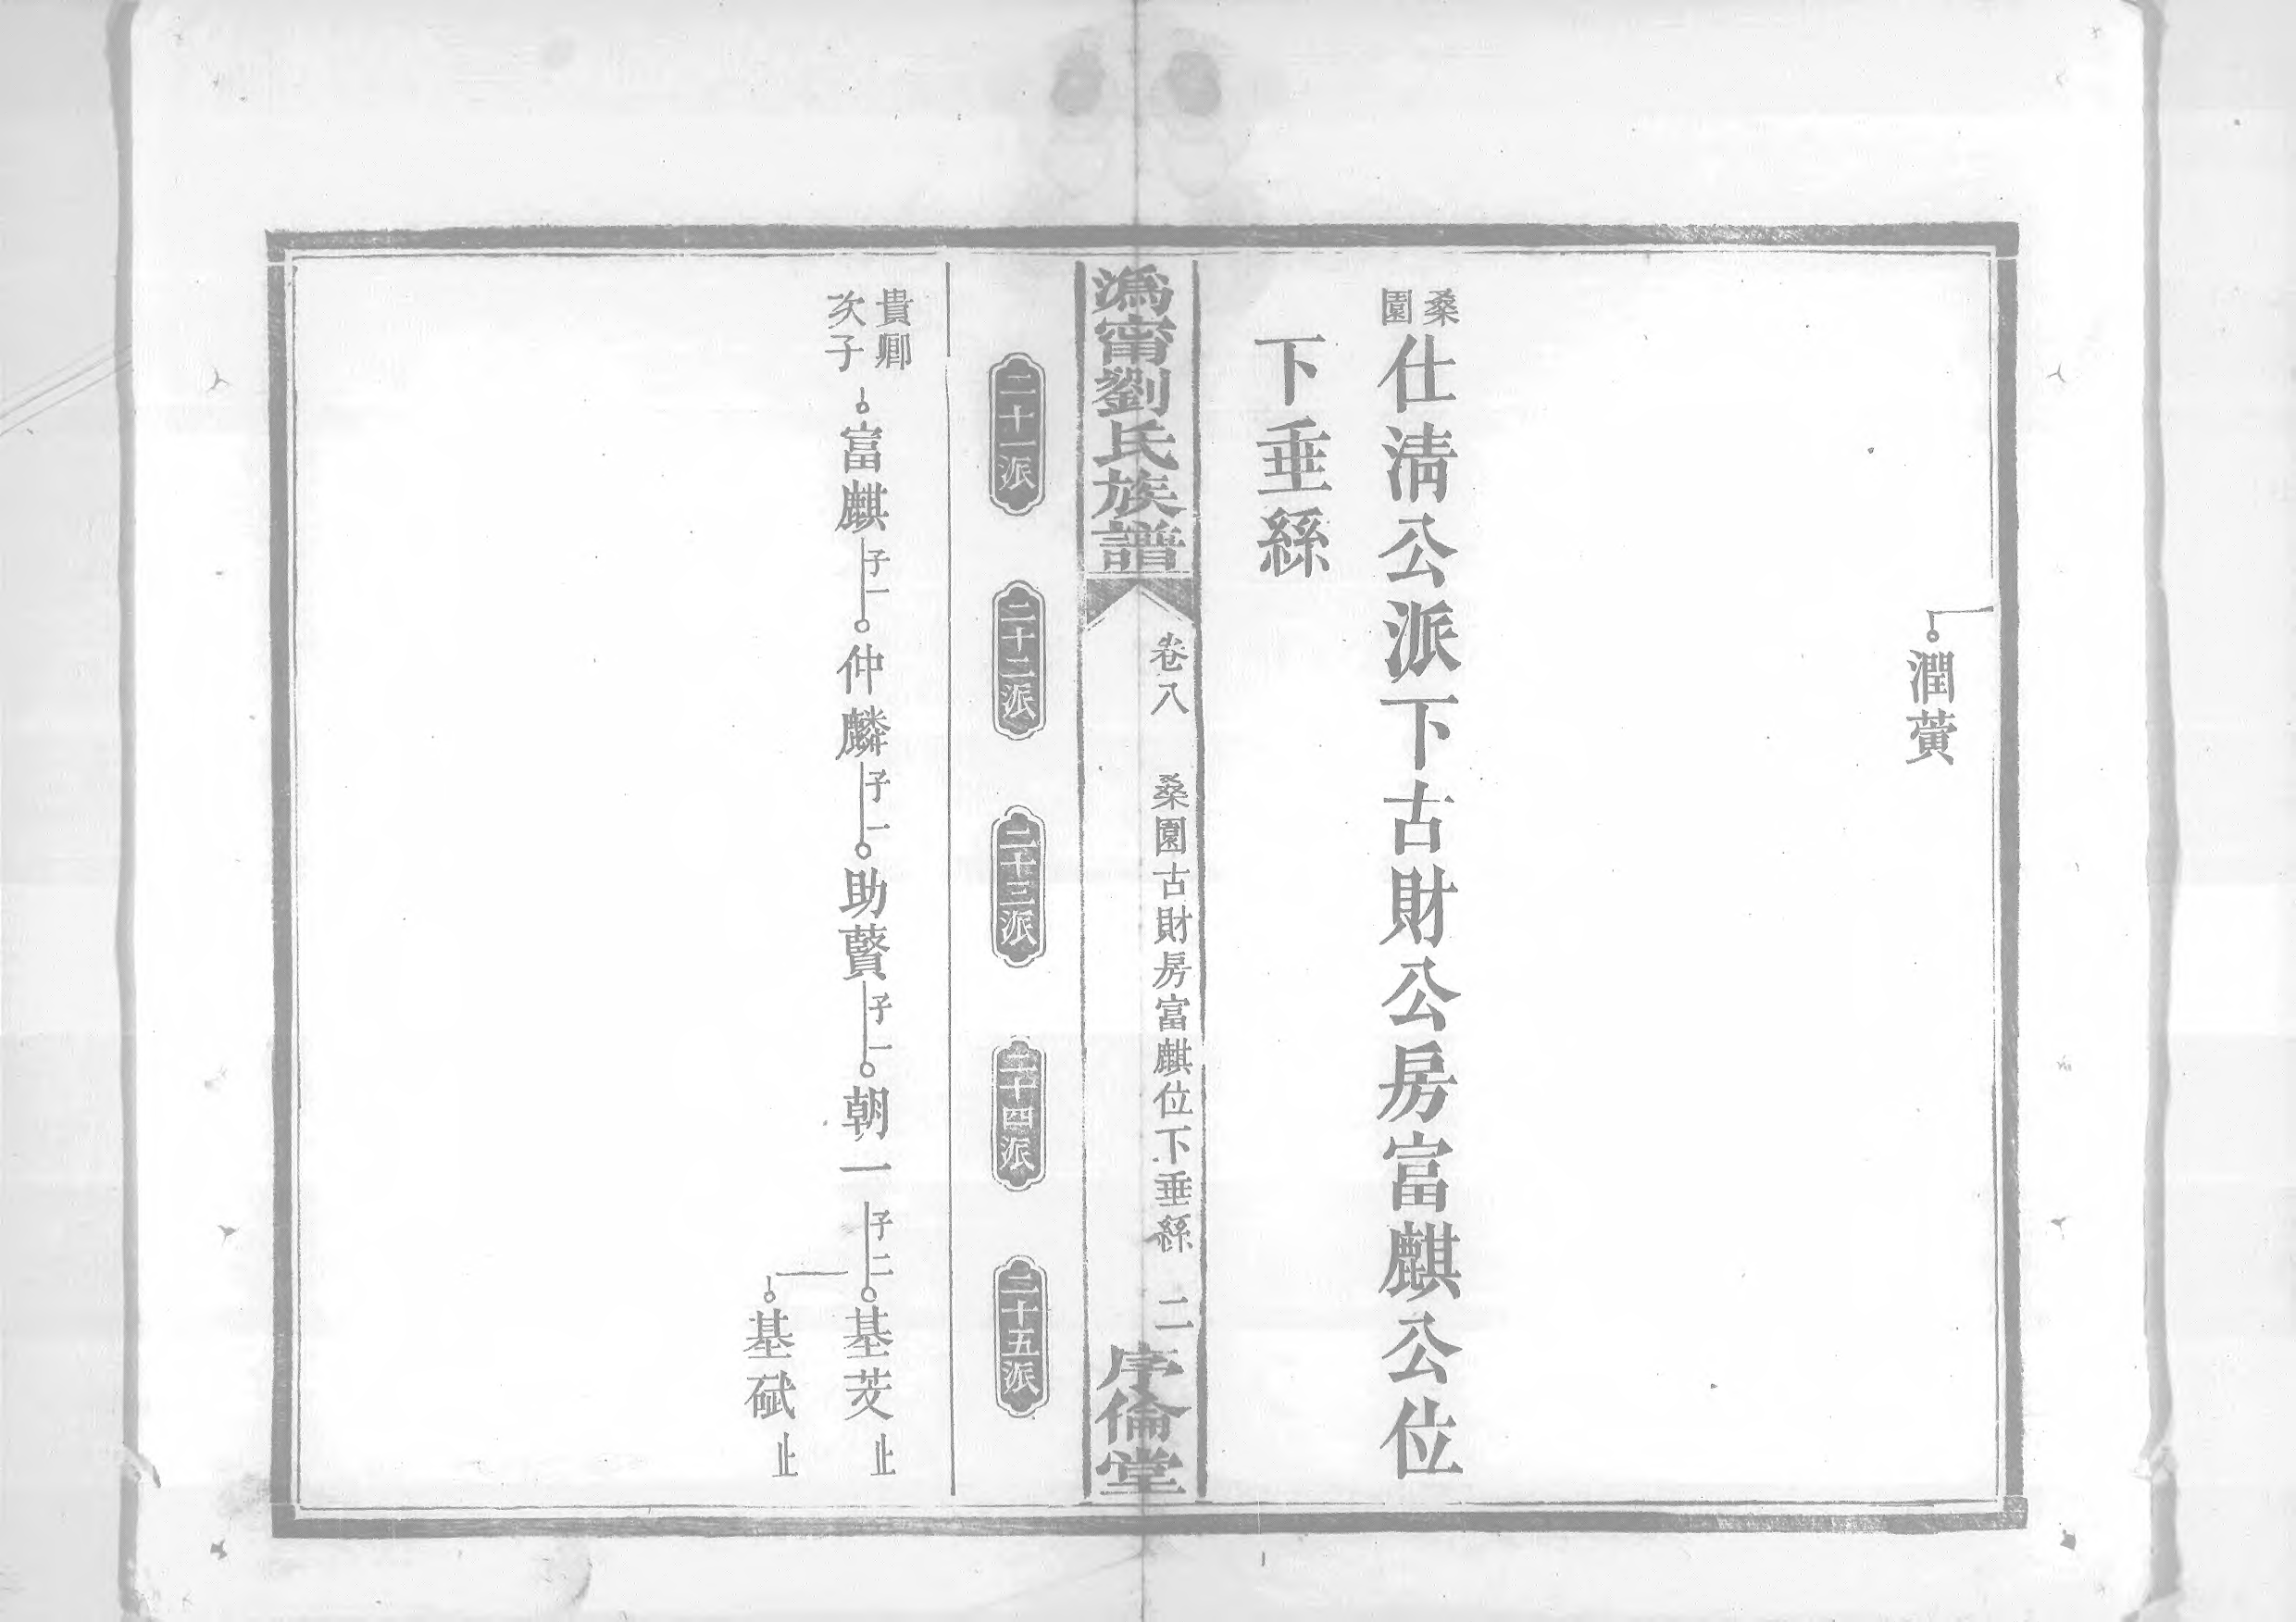 潤蕢
桑園
仕淸公派下古財公房富麒公位
下垂絲
溈甯劉氏族譜
卷八
桑園古財房富麒位下垂絲
二
序倫堂
二十一派
二十二派
二十三派
二十四派
二十五派
貴卿
次子
富麒
子一
仲麟
子一
助
子一
朝一
子二
基茭
止
基碔
止